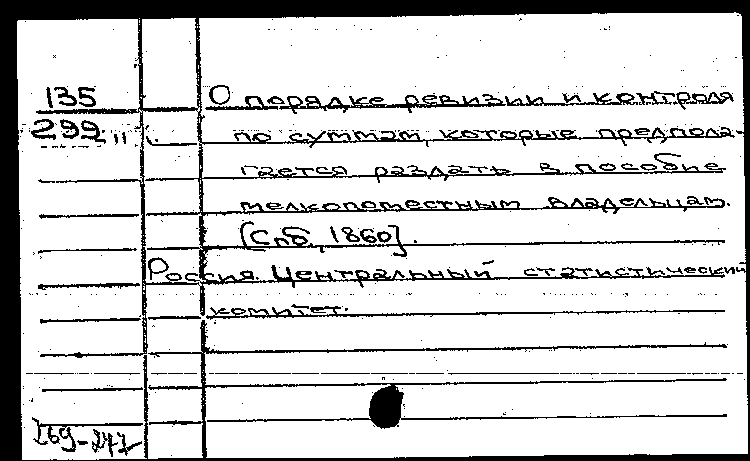 135 О порядке ревизии и контроля
299 по суммам, которые предпола-
гается раздать в пособие
мелкопоместным владельцам.
[Спб., 1860].
Россия. Центральный статистический
комитет.
169-247